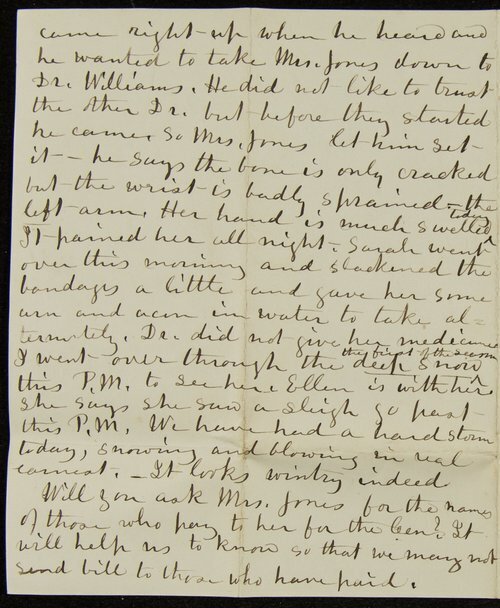 came right up when he heard and
he wanted to take Mrs. Jones down to
Dr. Williams. He did not like to trust
the other Dr. but before they started
he came. So Mrs. Jones let him set
it - he says the bone is only cracked
but the wrist is badly sprained - the
left arm. Her hand is much swelled
today
It pained her all night. Sarah went
over this morning and slackened the
bandages a little and gave her some
arn and acon in water to take al-
ternately. Dr. did not give her medicine
I went over through the deep snow
the first of the season
this P.M. to see her. Ellen is with her
she says she saw a sleigh go past
this P.M. We have had a hard storm
today, snowing and blowing in real
earnest. - It looks wintry indeed
Will you ask Mrs. Jones for the names
of those who pay to her for the Cen? It
will help us to know so that we may not
send bill to those who have paid.